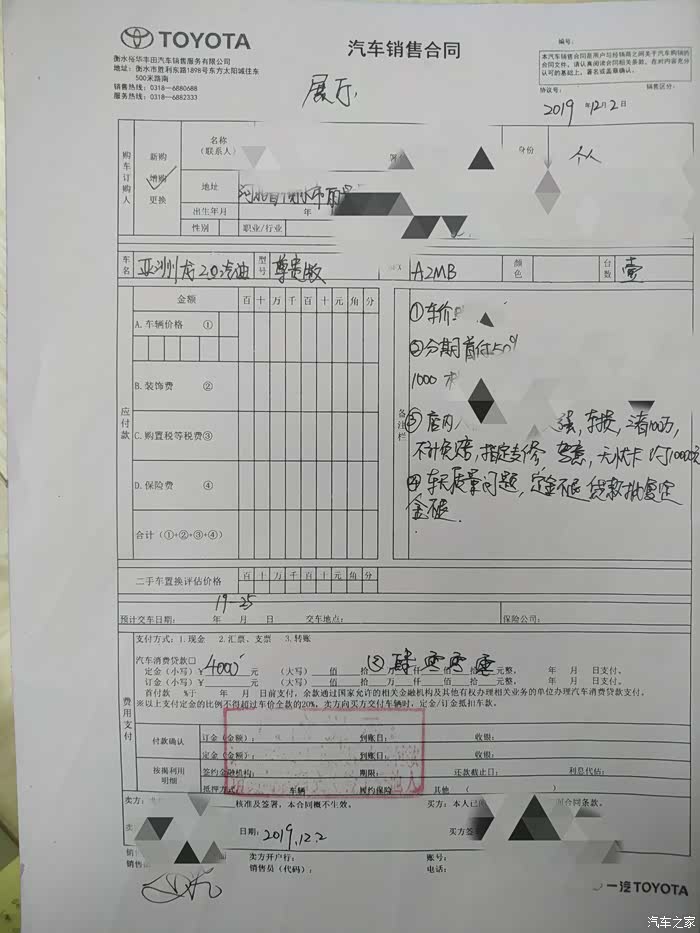 TOYOTA
汽车销售合同
编号：
衡水裕华丰田汽车销售服务有限公司
地址：衡水市胜利东路1898号东方太阳城佳东
500米路南
销售热线：0318-6880688
服务热线：0318-6882333
本文件汽车销售合同是用户与经销商之间关于汽车购销的
合同文件，请认真阅读合同相关条款，在对内容充分
认可的基础上，署名或盖章确认。
协议号： 销售区分：
展厅
2019年12月2日
购车订购人
新购
增购
更换
名称
（联系人）
身份
个人
地址
出生年月 年
性别 职业/行业
车名 亚洲龙2.0汽油 型号 尊贵版 A2MB 颜色 台数 壹
金额 百 十 万 千 百 十 元 角 分
应付款
A.车辆价格 ①
B.装饰费 ②
C.购置税等税费③
D.保险费 ④
合计（①+②+③+④）
备注栏
①车价
②分期首付50%
1000
③店内 强，车损，三者100万，
不计免赔，指定专修， 无忧卡
④车无质量问题，定金不退 贷款批复定
金不退．
二手车置换评估价格 百 十 万 千 百 十 元 角 分
19-25
预计交车日期： 年 月 日 交车地点： 保险公司：
费用支付
支付方式：1.现金 2.汇票、支票 3.转账
汽车消费贷款□
定金（小写）￥4000元 （大写） 佰 拾 万 肆仟 零佰 零拾 零元整， 年 月 日支付。
订金（小写）￥ 元 （大写） 佰 拾 万 仟 佰 拾 元整， 年 月 日支付。
首付款 %于 年 月 日前支付，余款通过国家允许的相关金融机构及其他有权办理相关业务的单位办理汽车消费贷款支付。
※以上支付定金的比例不得超过车价全款的20%，卖方向买方交付车辆时，定金/订金抵扣车款。
付款确认
订金（金额）： 到账日： 收银：
定金（金额）： 到账日： 收银：
按揭利用
明细
签约金融机构： 期限： 还款截止日： 利息代估：
抵押方式： 车辆 履约保险 其他 （ ）
卖方： 核准及签署，本合同概不生效。 买方：本人已 合同条款。
日期：2019.12.2 买方签
卖方开户行： 账号：
销售员（代码）： 电话：
一汽TOYOTA
汽车之家